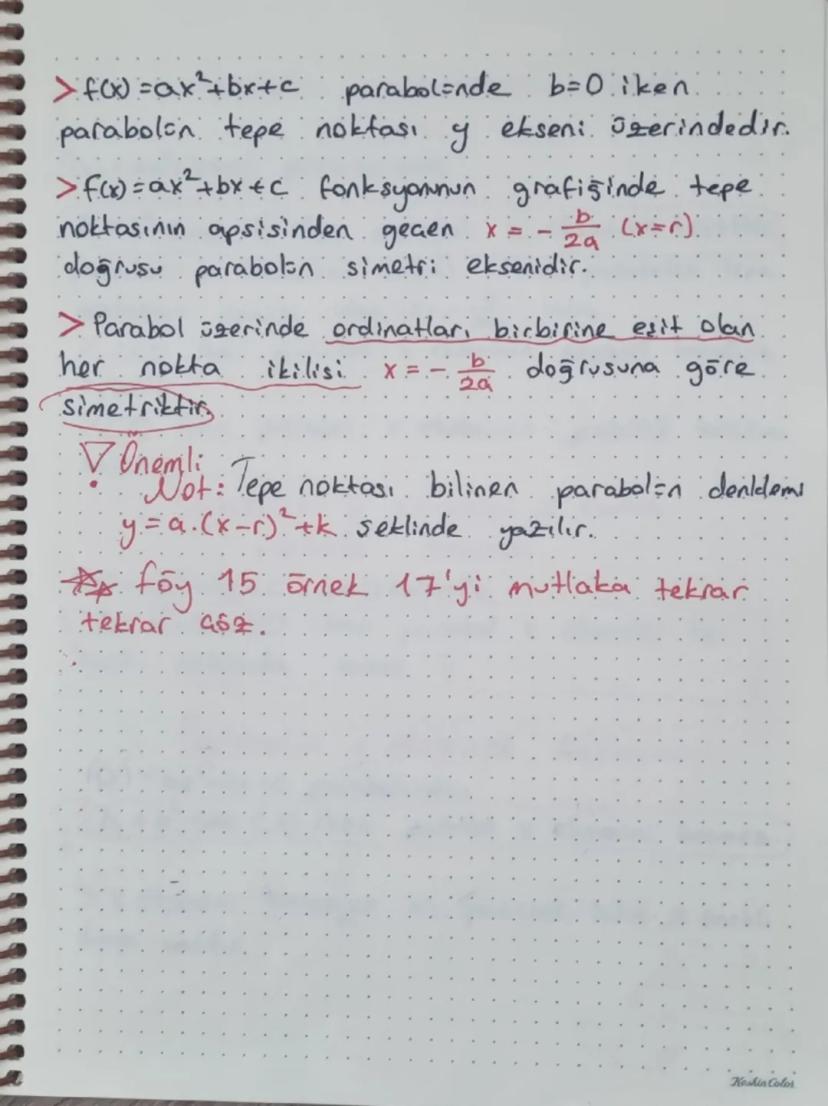 > f(x) = ax²+bx+c parabolünde b=0 iken
parabolün tepe noktası y ekseni üzerindedir.
> f(x) = ax²+bx+c fonksyonunun grafiğinde tepe
noktasının apsisinden geçen x = - b/2a (x=r)
doğrusu parabolün simetri eksenidir.
> Parabol üzerinde ordinatları birbirine eşit olan
her nokta ikilisi x = - b/2a doğrusuna göre
simetriktir.
Önemli
Not: Tepe noktası bilinen parabolün denklemi
y = a.(x-r)²+k şeklinde yazılır.
föy 15 örnek 17'yi mutlaka tekrar
tekrar çöz.
KeskinColor